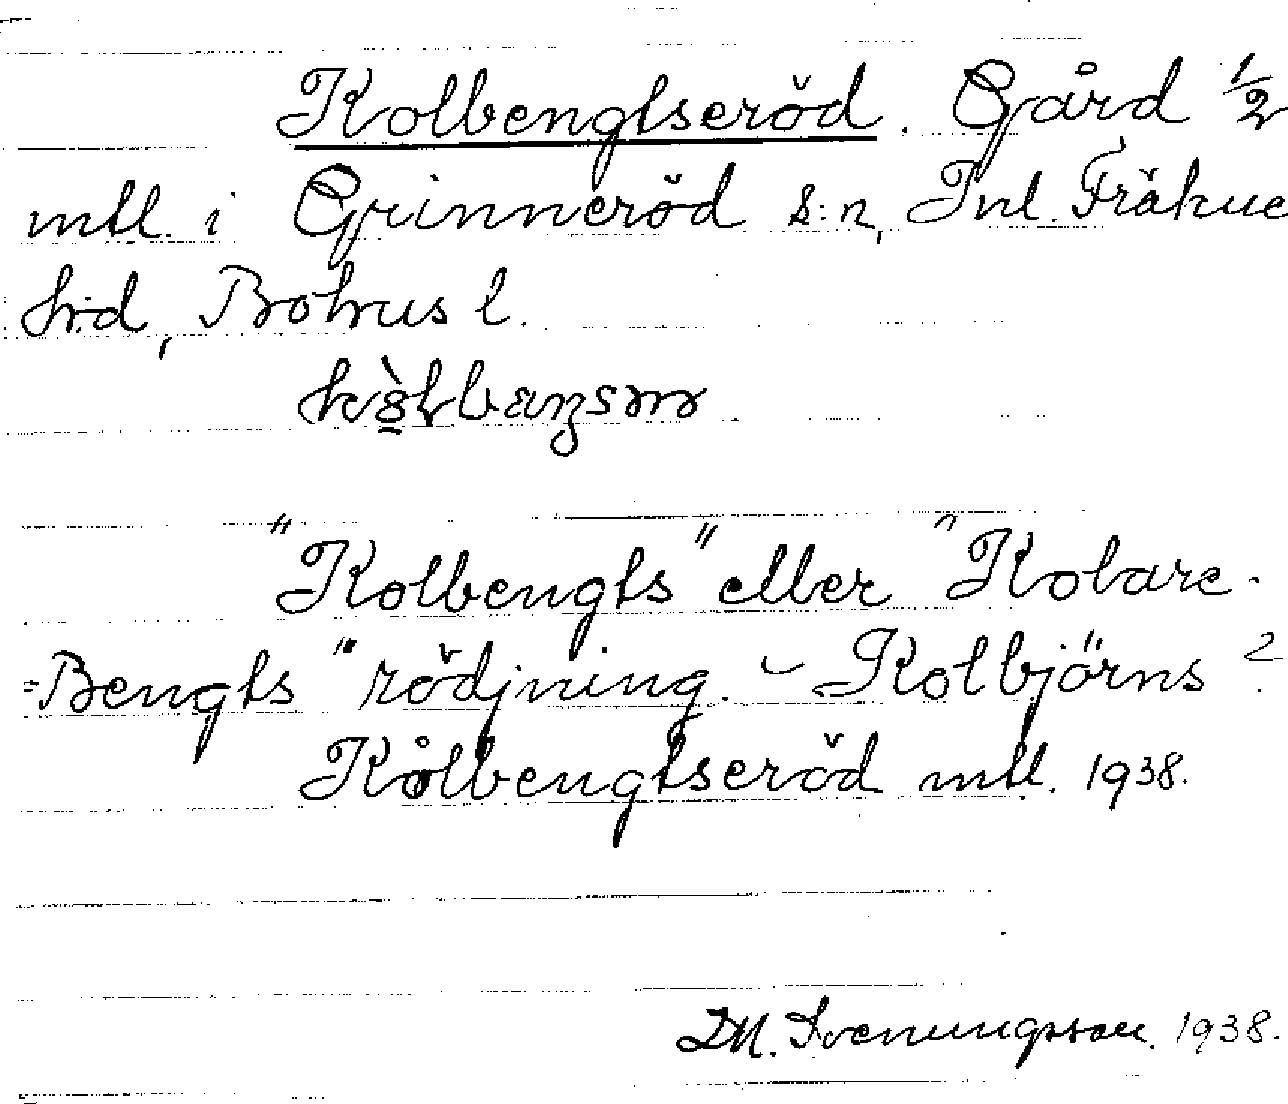 Kolbengtseröd. Gård 1/2
mtl. i Grinneröd s:n, Inl. Fräkne
h:d, Bohus l.
"Kolbengts" eller "Kolare-
=Bengts" rödjning. - Kolbjörns?
Kålbengtseröd mtl. 1938.
D.H. Svenungsson. 1938.